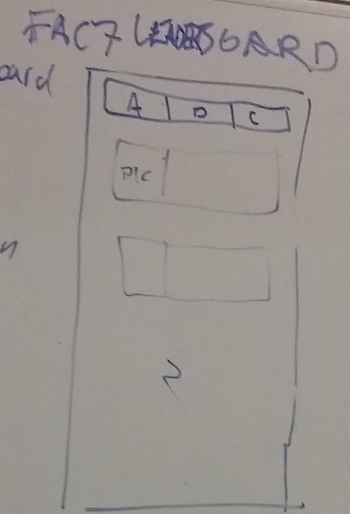 FACT LEADERSBOARD
oard
A D C
PIC
n